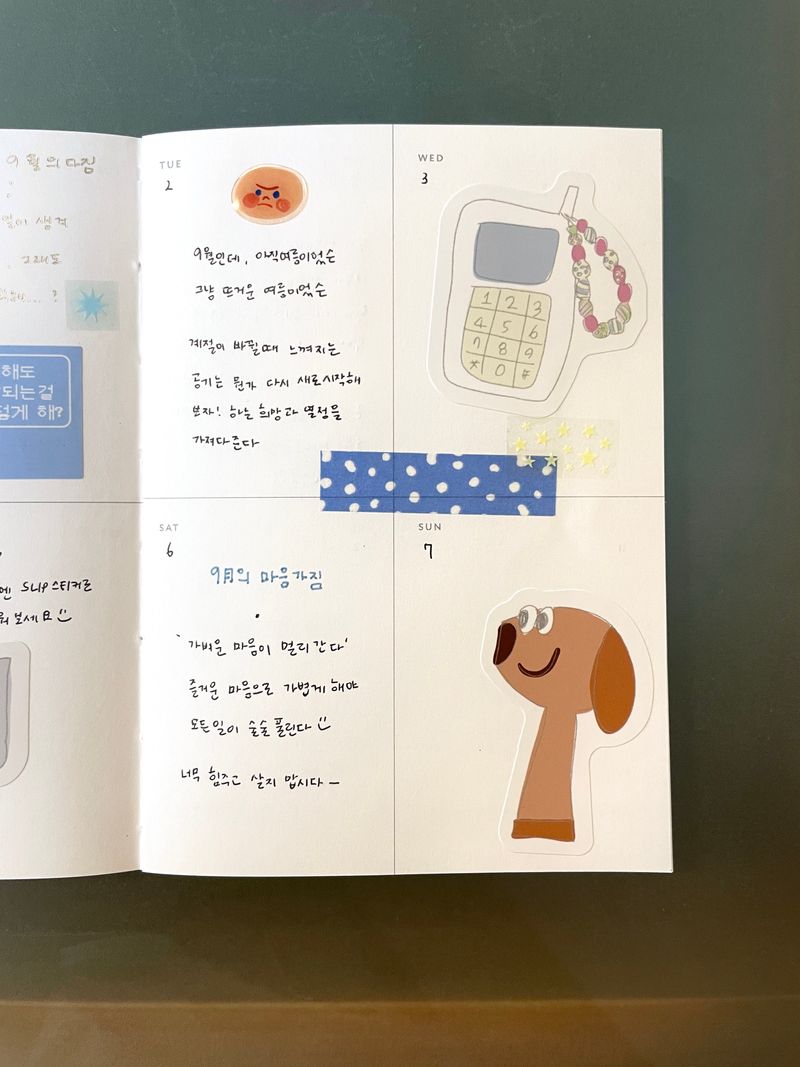 9월의 다짐
생겨
그래도
?
해도
되는걸
렇게 해?
SLIP 스티커로
보세요
TUE
2
9월인데, 아직여름이었슨
그냥 뜨거운 여름이었슨
계절이 바뀔때 느껴지는
공기는 뭔가 다시 새로시작해
보자! 하는 희망과 열정을
가져다준다
WED
3
1 2 3
4 5 6
7 8 9
* 0 #
SAT
6
9月의 마음가짐
'가벼운 마음이 멀리간다'
즐거운 마음으로 가볍게해야
모든일이 술술 풀린다
너무 힘주고 살지 맙시다 –
SUN
7